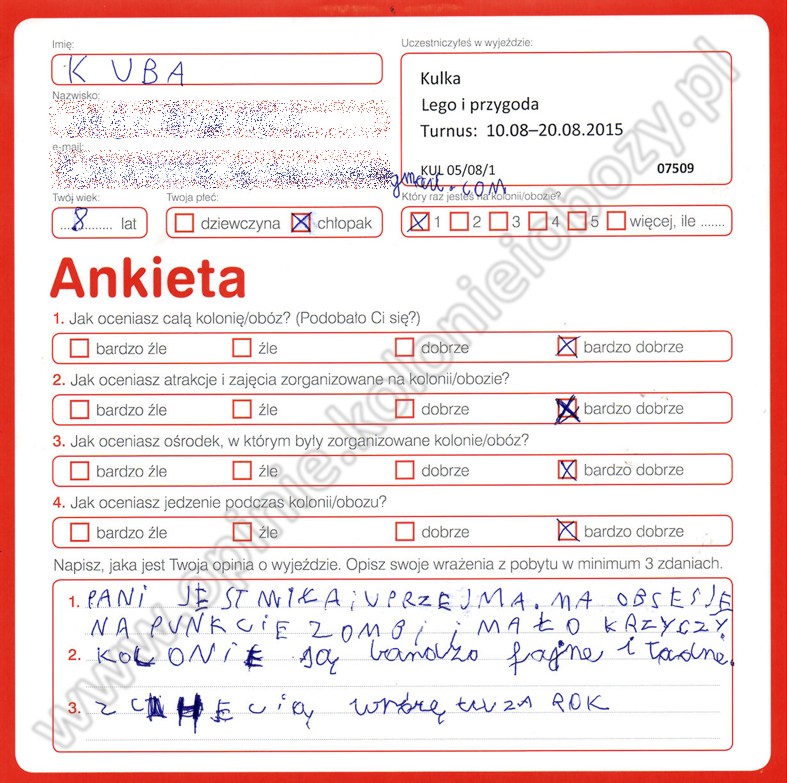 Imię:
KUBA
Nazwisko:
e-mail:
gmail.com
Uczestniczyłeś w wyjeździe:
Kulka
Lego i przygoda
Turnus: 10.08–20.08.2015
KUL 05/08/1 07509
Twój wiek:
...8........ lat
Twoja płeć:
dziewczyna chłopak
Który raz jesteś na kolonii/obozie?
1 2 3 4 5 więcej, ile .......
Ankieta
1. Jak oceniasz całą kolonię/obóz? (Podobało Ci się?)
bardzo źle źle dobrze bardzo dobrze
2. Jak oceniasz atrakcje i zajęcia zorganizowane na kolonii/obozie?
bardzo źle źle dobrze bardzo dobrze
3. Jak oceniasz ośrodek, w którym były zorganizowane kolonie/obóz?
bardzo źle źle dobrze bardzo dobrze
4. Jak oceniasz jedzenie podczas kolonii/obozu?
bardzo źle źle dobrze bardzo dobrze
Napisz, jaka jest Twoja opinia o wyjeździe. Opisz swoje wrażenia z pobytu w minimum 3 zdaniach.
1. PANI JEST MIŁA I UPRZEJMA. MA OBSESJE
NA PUNKCIE ZOMBI I MAŁO KRZYCZY.
2. KOLONIE są bardzo fajne i ładne.
3. Z CHĘCIĄ wrócę tu ZA ROK
www.opinie.kolonieiobozy.pl